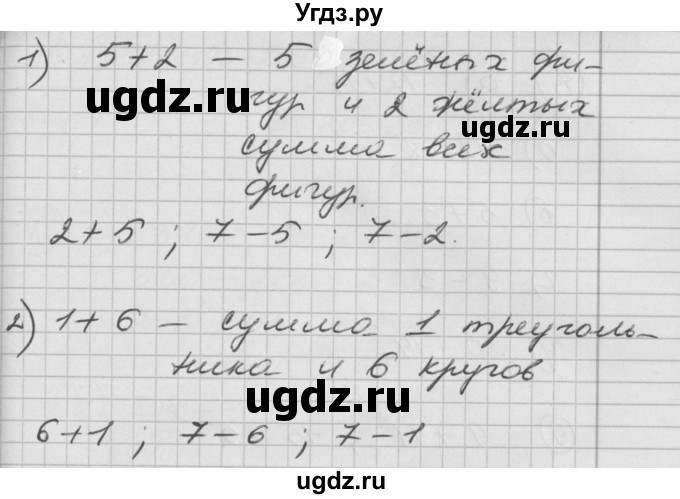 Угдз.ру
1) 5+2 – 5 зелёных фи-
гур и 2 жёлтых
ugdz.ru
ugdz.ru
сумма всех
фигур.
2+5 ; 7–5 ; 7–2.
2) 1+6 – сумма 1 треуголь-
ника и 6 кругов
ugdz.ru
ugdz.ru
6+1 ; 7–6 ; 7–1
ugdz.ru